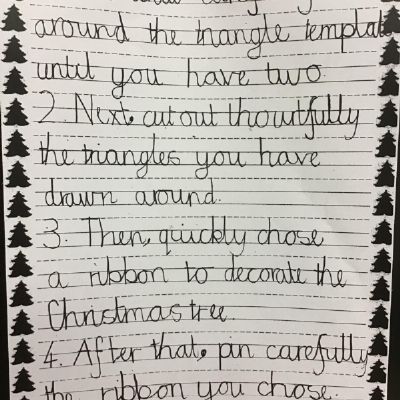 around the triangle template
until you have two.
2. Next, cut out thourtfully
the triangles you have
drawn around.
3. Then, quickly chose
a ribbon to decorate the
Christmas tree.
4. After that, pin carefully
the ribbon you chose.